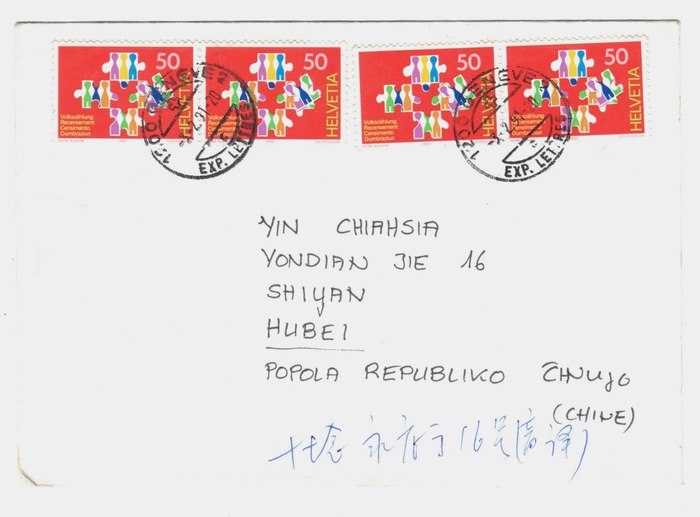 50 50 50 50
HELVETIA HELVETIA HELVETIA HELVETIA
Volkszählung Volkszählung Volkszählung Volkszählung
Recensement Recensement Recensement Recensement
Censimento Censimento Censimento Censimento
Dumbraziun Dumbraziun Dumbraziun Dumbraziun
1200 GENÈVE
EXP. LETTRES
1200 GENÈVE
EXP. LETTRES
YIN CHIAHSIA
YONDIAN JIE 16
SHIYAN
HUBEI
POPOLA REPUBLIKO ĈINUJO
(CHINE)
十堰 永 16号(音译)